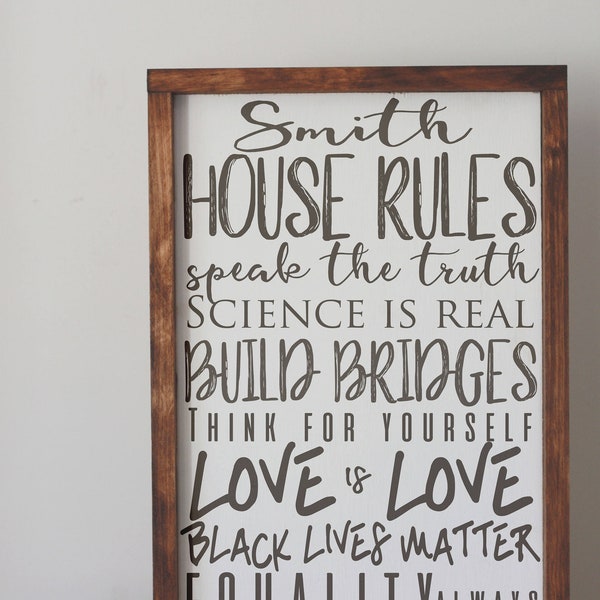 Smith
HOUSE RULES
speak the truth
SCIENCE IS REAL
BUILD BRIDGES
THINK FOR YOURSELF
LOVE is LOVE
BLACK LIVES MATTER
EQUALITY ALWAYS